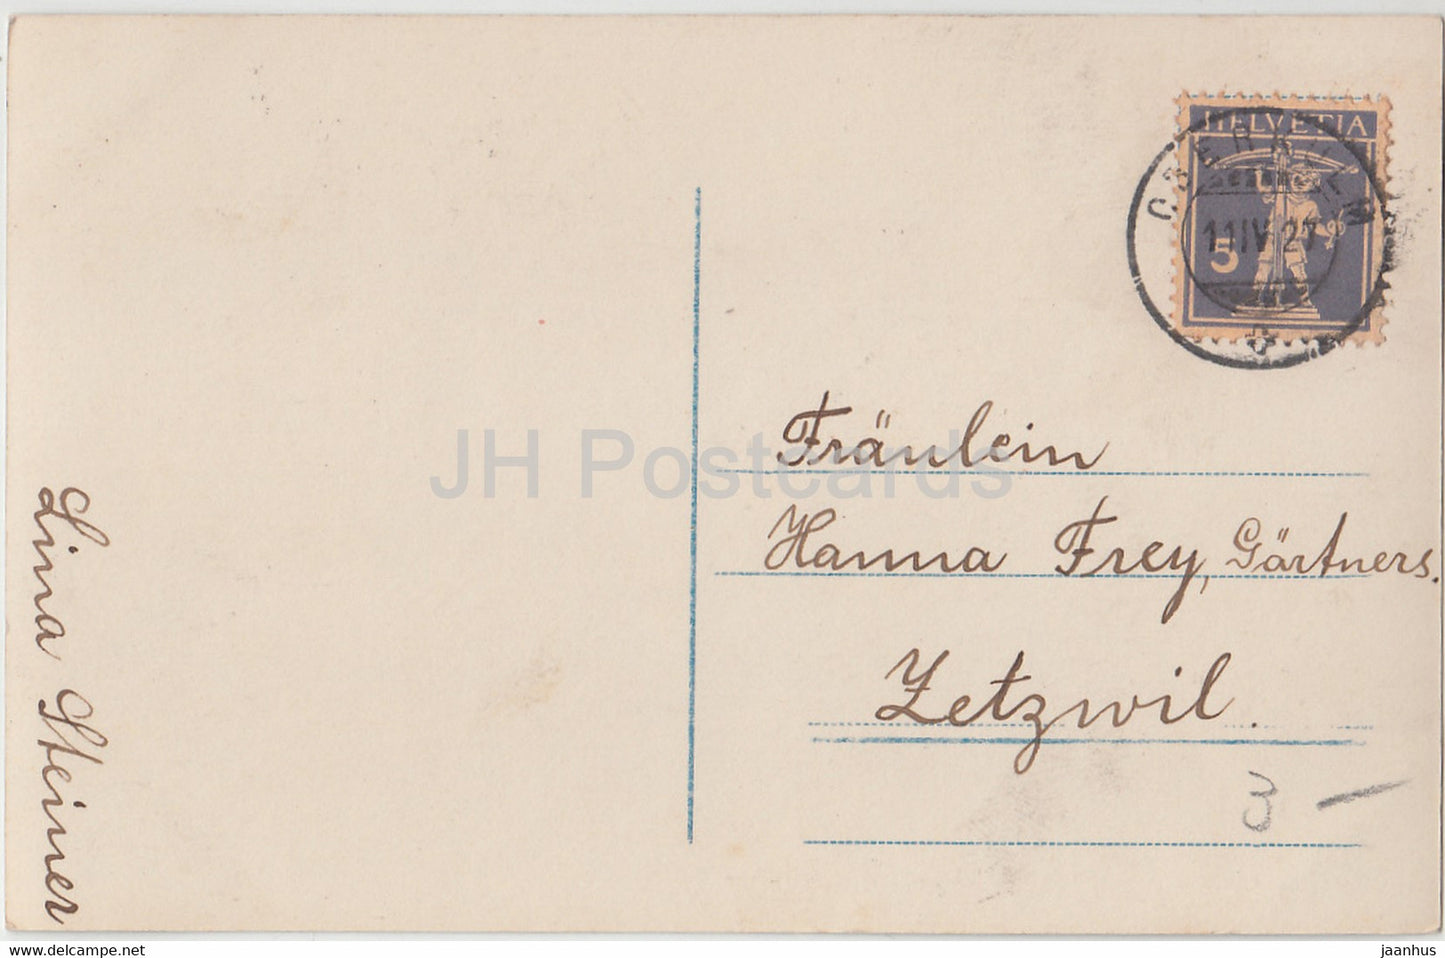 HELVETIA
11 IV 27
5
Fräulein
Hanna Frey, Gärtners.
Zetzwil.
3 —
Lina Steiner
JH Postcards
www.delcampe.net
jaanhus